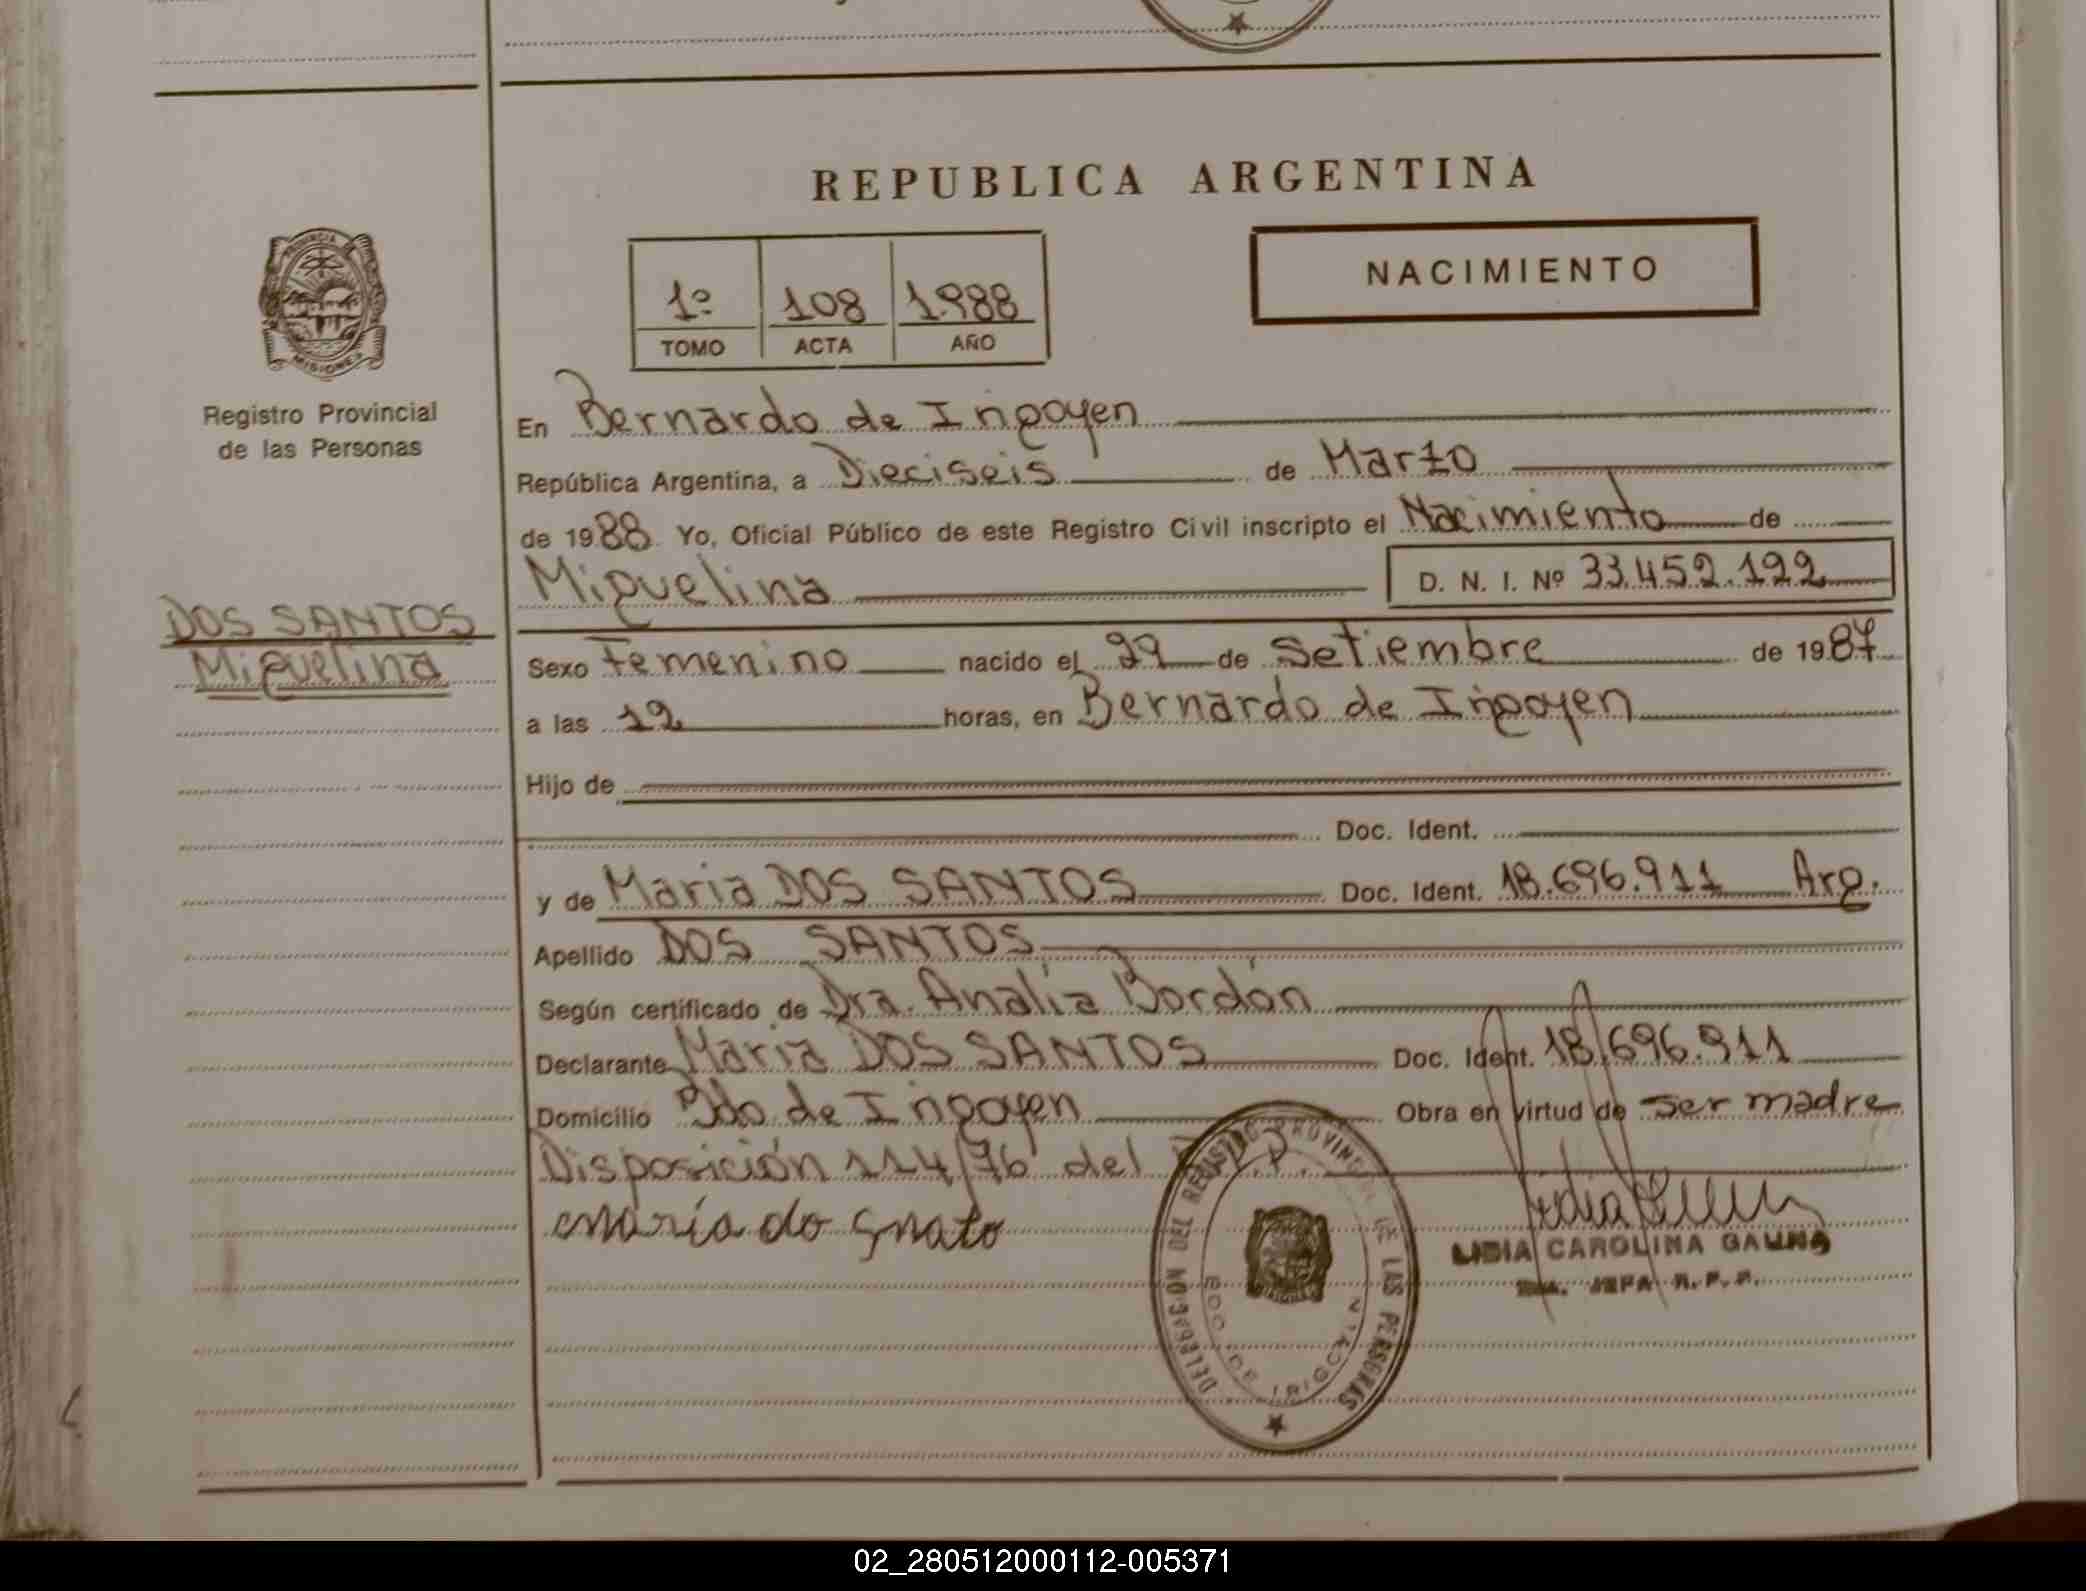 REPUBLICA ARGENTINA
NACIMIENTO
1º 108 1.988
TOMO ACTA AÑO
PROVINCIA
MISIONES
Registro Provincial
de las Personas
DOS SANTOS
Miguelina
En Bernardo de Irigoyen
República Argentina, a Dieciseis de Marzo
de 1988 Yo, Oficial Público de este Registro Civil inscripto el Nacimiento de
Miguelina D. N. I. Nº 33.452.122
Sexo Femenino nacido el 29 de Setiembre de 1987
a las 12 horas, en Bernardo de Irigoyen
Hijo de
Doc. Ident.
y de Maria DOS SANTOS Doc. Ident. 18.696.911 Arg.
Apellido DOS SANTOS
Según certificado de Dra. Analía Bordón
Declarante Maria DOS SANTOS Doc. Ident. 18.696.911
Domicilio Bdo de Irigoyen Obra en virtud de ser madre
Disposición 114/76 del
maría do
LIDIA CAROLINA GAUNA
JEFA R. P. P.
DELEGACION DEL REGISTRO PROVINCIAL DE LAS PERSONAS
BDO. DE IRIGOYEN
02_280512000112-005371